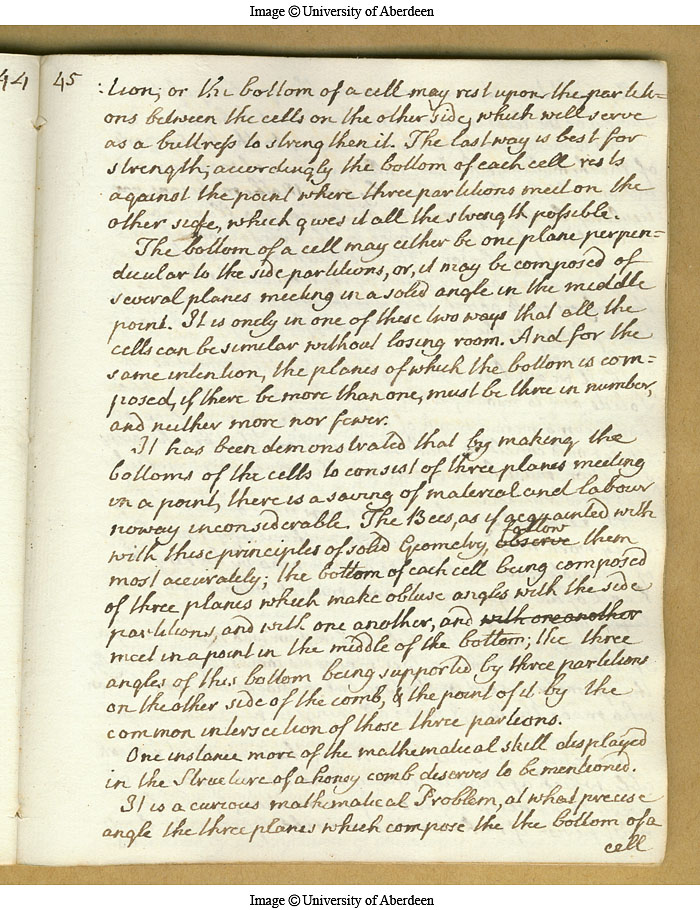 Image © University of Aberdeen
44
45
:tion; or the bottom of a cell may rest upon the partiti=
ons between the cells on the other side, which will serve
as a buttress to strengthen it. The last way is best for
strength; accordingly the bottom of each cell rests
against the point where three partitions meet on the
other side, which gives it all the strength possible.
The bottom of a cell may either be one plane perpen=
dicular to the side partitions, or, it may be composed of
several planes meeting in a solid angle in the middle
point. It is onely in one of these two ways that all the
cells can be similar without losing room. And for the
same intention, the planes of which the bottom is com=
posed, if there be more than one, must be three in number,
and neither more nor fewer.
It has been demonstrated that by making the
bottoms of the cells to consist of three planes meeting
in a point, there is a saving of material and labour
noway inconsiderable. The Bees, as if acquainted with
follow
with these principles of solid Geometry, observe them
most accurately; the bottom of each cell being composed
of three planes which make obtuse angles with the side
partitions, and with one another, and with one another
meet in a point in the middle of the bottom; the three
angles of this bottom being supported by three partitions
on the other side of the comb, & the point of it by the
common intersection of those three partions.
One instance more of the mathematical skill displayed
in the Structure of a honey comb deserves to be mentioned.
It is a curious mathematical Problem, at what precise
angle the three planes which compose the the bottom of a
cell
Image © University of Aberdeen